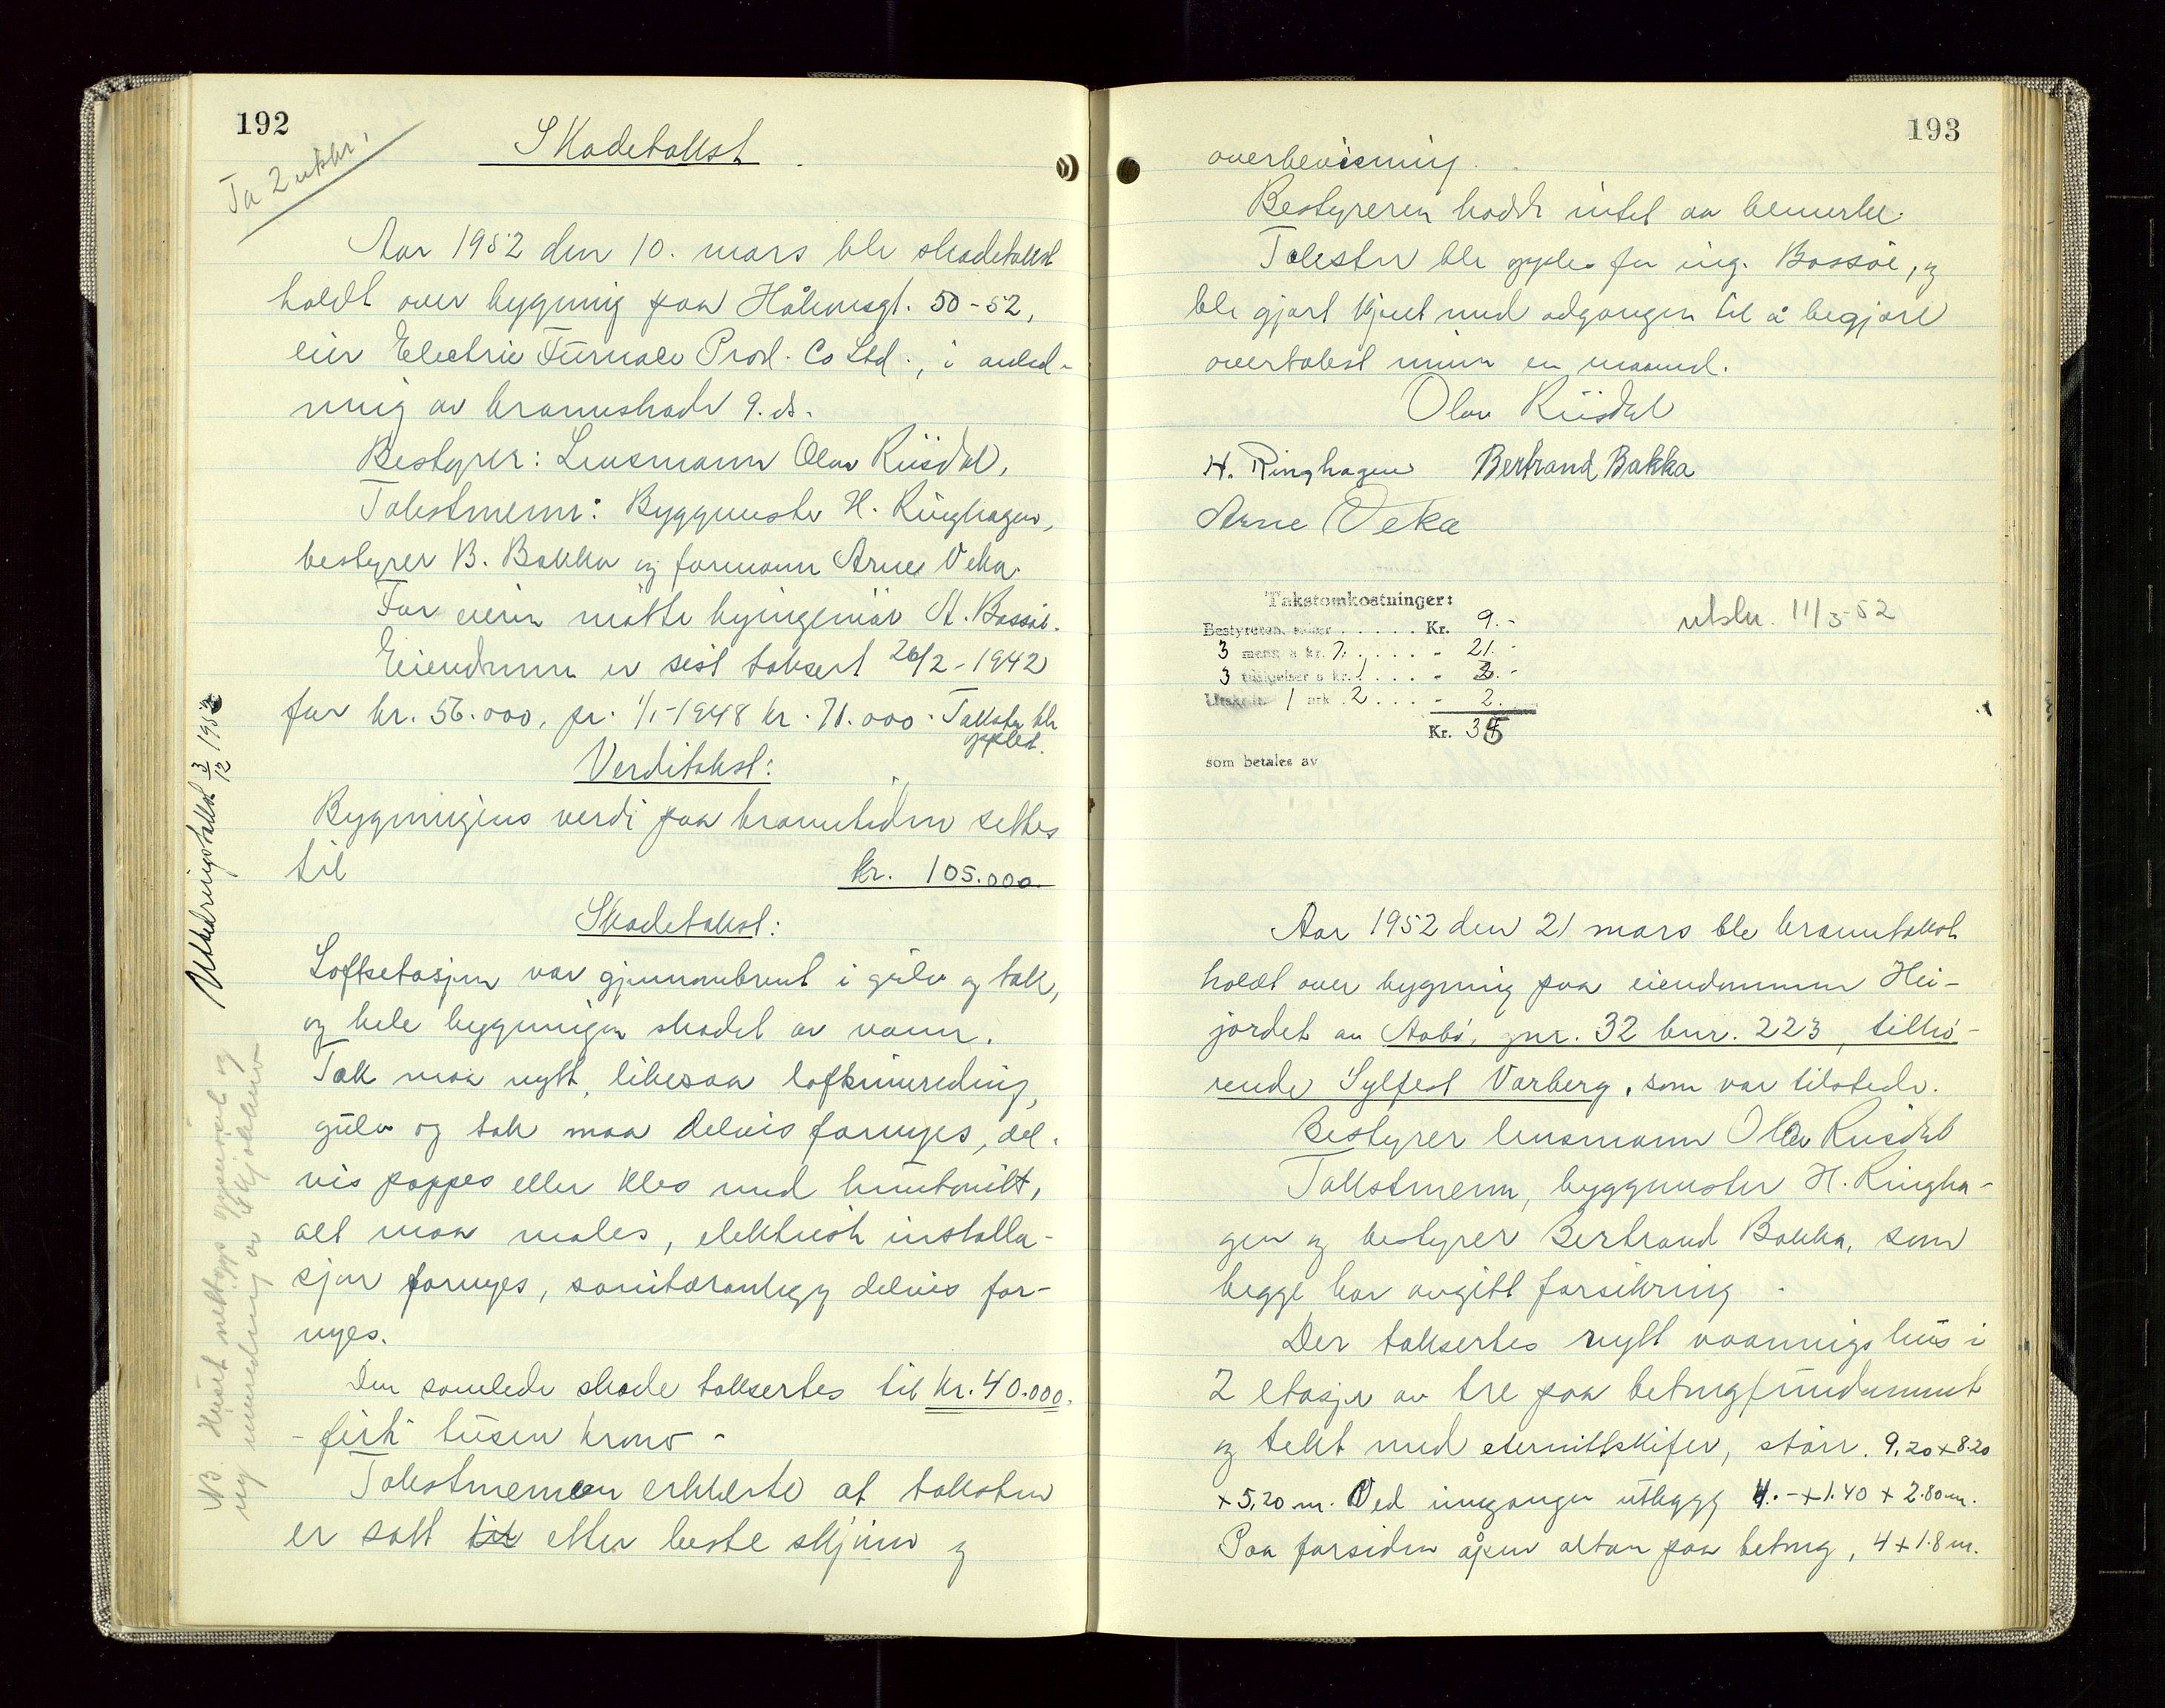 192
Ta 2 utskr.
Skadetakst.
Aar 1952 den 10. mars ble skadetakst
holdt over bygning paa Håkonsgt. 50-52,
eier Electric Furnace Prod. Co Ltd., i anled-
ning av brannskade 9. ds.
Bestyrer: Lensmann Olav Riisdal,
Takstmenn: Byggmester H. Ringhagen,
bestyrer B. Bakka og formann Arne Veka.
For eieren møtte byingeniør St. Bossøe.
Eiendommen er sist taksert 26/2-1942
for kr. 56.000, pr. 1/1-1948 kr. 71.000. Taksten ble
opplest.
Verditakst:
Bygningens verdi paa branntiden settes
til kr. 105.000.
Skadetakst:
Loftsetasjen var gjennombrent i gulv og tak,
og hele bygningen skadet av vann.
Tak maa nytt, likesaa loftsinnreding,
gulv og tak maa delvis fornyes, del-
vis pappes eller kles med huntonitt,
alt maa males, elektrisk installa-
sjon fornyes, sanitæranlegg delvis for-
nyes.
Den samlede skade taksertes til kr. 40.000.
- førti tusen kroner -
Takstmennen erklærte at taksten
er satt til etter beste skjønn og
Utbedringstakst 3/12 1952
NB. Huset nettopp oppusset og
ny innredning av
193
overbevisning.
Bestyreren hadde intet aa bemerke.
Taksten ble opplest for ing. Bossøe, og
ble gjort kjent med adgangen til å begjære
overtakst innen en maaned.
Olav Riisdal
H. Ringhagen Bertrand Bakka
Arne Veka
Takstomkostninger:
Bestyreren Kr. 9.-
3 menn a kr. 7. - 21.-
3 tilsigelser a kr. 1 - 3.-
Utskr. 1 ark 2 - 2.
Kr. 35
som betales av
utskr. 11/3-52
Aar 1952 den 21 mars ble branntakst
holdt over bygning paa eiendommen Hei-
jordet av Aabø, gnr. 32 bnr. 223, tilhø-
rende Sylfest Varberg, som var tilstede.
Bestyrer lensmann Olav Riisdal
Takstmenn, byggmester H. Ringha-
gen og bestyrer Bertrand Bakka, som
begge har avgitt forsikring.
Der taksertes nytt vaaningshus i
2 etasjer av tre paa betongfundament
og tekt med eternittskifer, størr. 9,20 x 8.20
x 5,20 m. Ved inngangen utbygg 4.- x 1.40 x 2.80 m.
Paa forsiden åpen altan paa betong, 4 x 1.8 m.